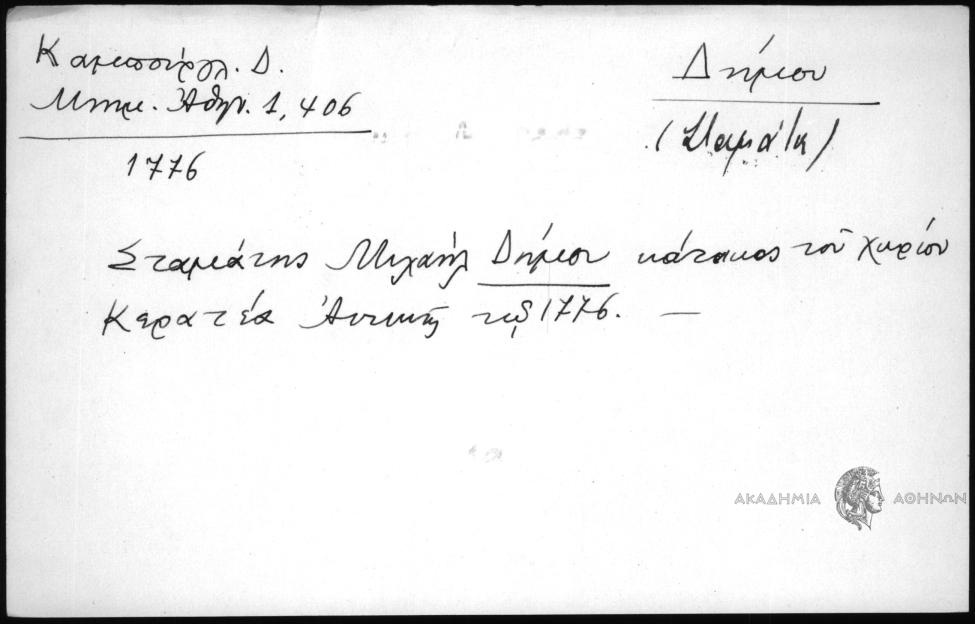 Καμπούρογλ. Δ.
Μνημ. Ἀθην. 1, 406
1776
Δήμου
(Σταμάτη)
Σταμάτης Μιχαὴλ Δήμου κάτοικος τοῦ χωρίου
Κερατέα Ἀττικῆς τῷ 1776. —
ΑΚΑΔΗΜΙΑ ΑΘΗΝΩΝ